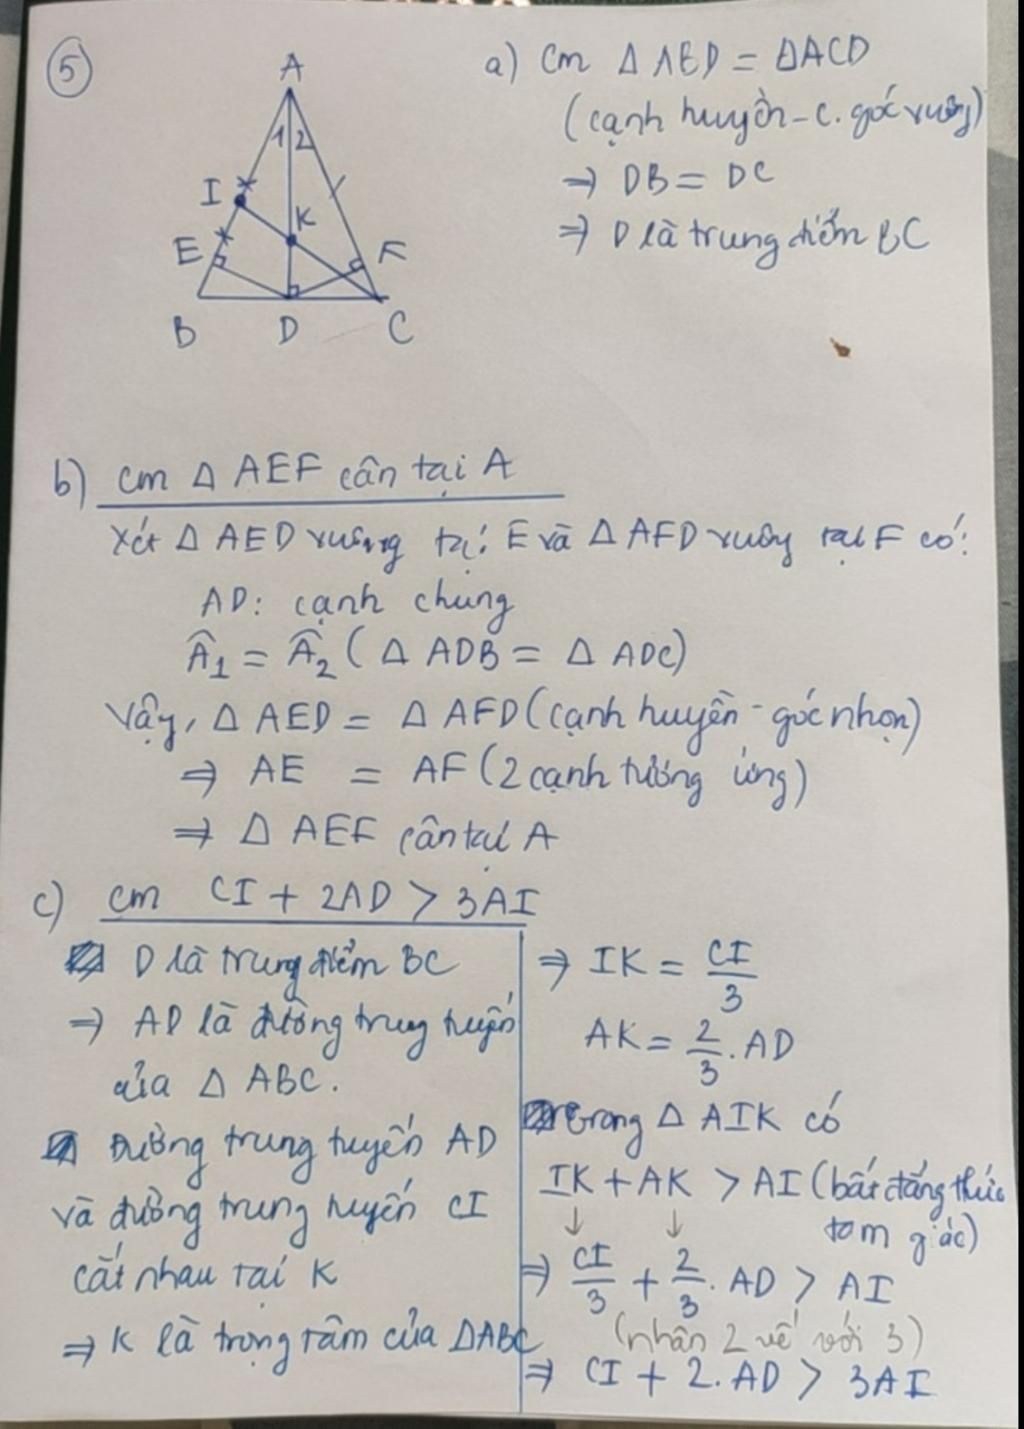 5
A
1 2
I
K
E
F
B
D
C
a) Cm Δ AED = ΔACD
(cạnh huyền - c. góc vuông)
⇒ DB = DC
⇒ D là trung điểm BC
b) cm Δ AEF cân tại A
Xét Δ AED vuông tại E và Δ AFD vuông tại F có:
AD: cạnh chung
Â1 = Â2 (Δ ADB = Δ ADC)
Vậy, Δ AED = Δ AFD (cạnh huyền - góc nhọn)
⇒ AE = AF (2 cạnh tương ứng)
⇒ Δ AEF cân tại A
c) cm CI + 2AD > 3AI
D là trung điểm BC
⇒ AD là đường trung tuyến
của Δ ABC.
Đường trung tuyến AD
và đường trung tuyến CI
cắt nhau tại K
⇒ K là trọng tâm của ΔABC
⇒ IK = CI/3
AK = 2/3 . AD
trong Δ AIK có
IK + AK > AI (bất đẳng thức
tam giác)
↓ ↓
⇒ CI/3 + 2/3 . AD > AI
(nhân 2 vế với 3)
⇒ CI + 2. AD > 3AI